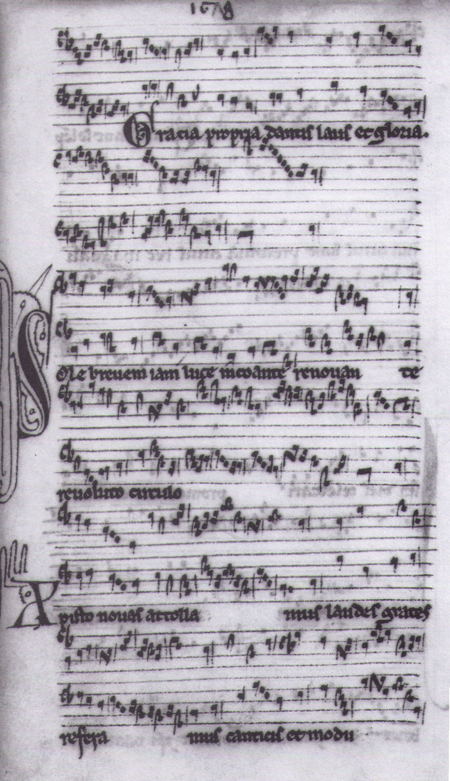 Gratia propria dantis laus et gloria.
Sole brevem iam luce renovan te
revoluto circulo
Xpisto novas attolla mus laudes grates
refera mus canticis et modu